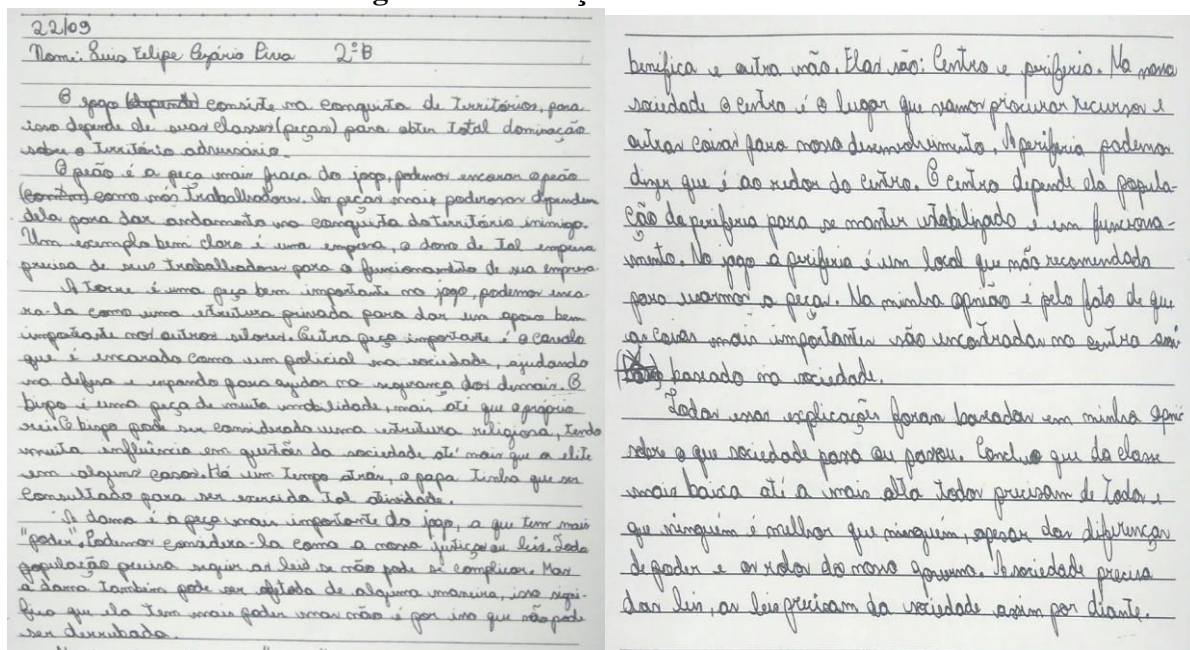 22/09
Nome: Luis Felipe Cezário Piva 2ºB
O jogo (depende) consiste na conquista de Territórios, para
isso depende de suas classes (peças) para obter Total dominação
sobre o Território adversário.
O peão é a peça mais fraca do jogo, podemos encarar o peão
como nós Trabalhadores. As peças mais poderosas dependem
dela para dar andamento na conquista do território inimigo.
Um exemplo bem claro é uma empresa, o dono de Tal empresa
precisa de seus Trabalhadores para o funcionamento de sua empresa.
A Torre é uma peça bem importante no jogo, podemos enca-
ra-la como uma estrutura privada para dar um apoio bem
importante nos outros setores. Outra peça importante é o cavalo
que é encarado como um policial na sociedade, ajudando
na defesa e expando para ajudar na segurança dos demais. O
bispo é uma peça de muita mobilidade, mais até que o próprio
rei. O bispo pode ser considerado uma estrutura religiosa, Tendo
muita influência em questões da sociedade até mais que a elite
em alguns casos. Há um Tempo atrás, o papa Tinha que ser
consultado para ser exercida Tal atividade.
A dama é a peça mais importante do jogo, a que tem mais
"poder". Podemos considera-la como a nossa justiça ou leis. Toda
população precisa seguir as leis se não pode se complicar. Mas
a dama também pode ser afetada de alguma maneira, isso signi-
fica que ela Tem mais poder mas não é por isso que não pode
ser derrubada.
benifica e outra não. Elas são: Centro e periferia. Na nossa
sociedade o centro é o lugar que vamos procurar recursos e
outras coisas para nosso desenvolvimento. A periferia podemos
dizer que é ao redor do centro. O centro depende da popula-
ção da periferia para se manter estabilizado e em funciona-
mento. No jogo a periferia é um local que não recomendado
para usarmos a peças. Na minha opinião é pelo fato de que
as coisas mais importantes são encontradas no centro
baseado na sociedade.
Todas essas explicações foram baseadas em minha opni
sobre o que sociedade passa ou passou. Concluo que da classe
mais baixa até a mais alta todos precisam de Todos e
que ninguém é melhor que ninguém, apesar das diferenças
de poder e os rolos do nosso governo. A sociedade precisa
das leis, as leis precisam da sociedade assim por diante.